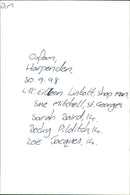 Oxfam,
Harpenden.
30.9.98
L-R: Eileen Lintott, Shop Man.
Sue Mitchell, St. Georges
Sarah Baird, 14.
Becky Pilditch, 14.
Zoe Jacques, 14.